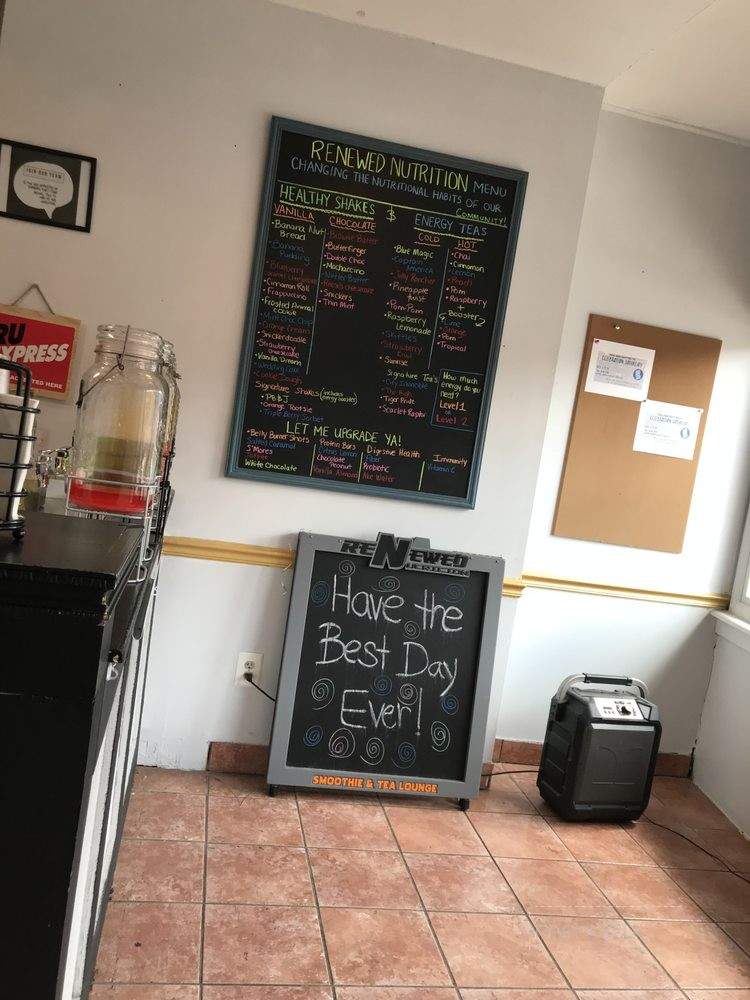 JOIN OUR TEAM
RU
XPRESS
RENEWED NUTRITION MENU
CHANGING THE NUTRITIONAL HABITS OF OUR
COMMUNITY!
HEALTHY SHAKES $
VANILLA
• Banana Nut
Bread
• Banana
Pudding
• Blueberry
• Cinnamon Roll
• Frappuccino
• Frosted Animal
Cookie
• Mint Choc Chip
• Orange Cream
• Snickerdoodle
• Strawberry
Cheesecake
• Vanilla Dream
• Wedding Cake
• Cookie Dough
CHOCOLATE
• Butterfinger
• Double Choc
• Mochaccino
• Nutter Butter
• Snickers
• Thin Mint
Signature Shakes (includes
energy booster)
• PB&J
• Orange Tootsie
• Triple Berry Sorbet
ENERGY TEAS
COLD
• Blue Magic
• Captain
America
• Jolly Rancher
• Pineapple
Twist
• Pom Pom
• Raspberry
Lemonade
• Skittles
• Strawberry
Kiwi
• Sunrise
HOT
• Chai
• Cinnamon
• Lemon
• Peach
• Pom
• Raspberry
+
Booster
• Lime
• Orange
• Pom
• Tropical
Signature Teas
• Tiger Pride
• Scarlet Raptor
How much
energy do you
need?
Level 1
or
Level 2
LET ME UPGRADE YA!
• Belly Burner Shots
Salted Caramel
S'Mores
Toffee
White Chocolate
Protein Bars
Citrus Lemon
Chocolate
Peanut
Vanilla Almond
Digestive Health
Fiber
Probiotic
Aloe Water
Immunity
Vitamin C
RENEWED
NUTRITION
Have the
Best Day
Ever!
SMOOTHIE & TEA LOUNGE